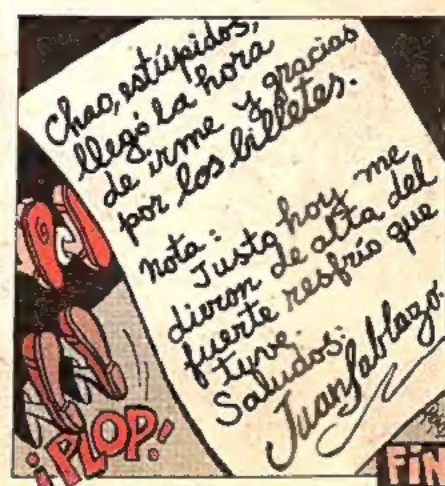 Chao, estúpidos,
llegó la hora
de irme y gracias
por los billetes.
nota:
Justo hoy me
dieron de alta del
fuerte resfrío que
tuve.
Saludos:
JuanSablazo.
¡PLOP!
FIN